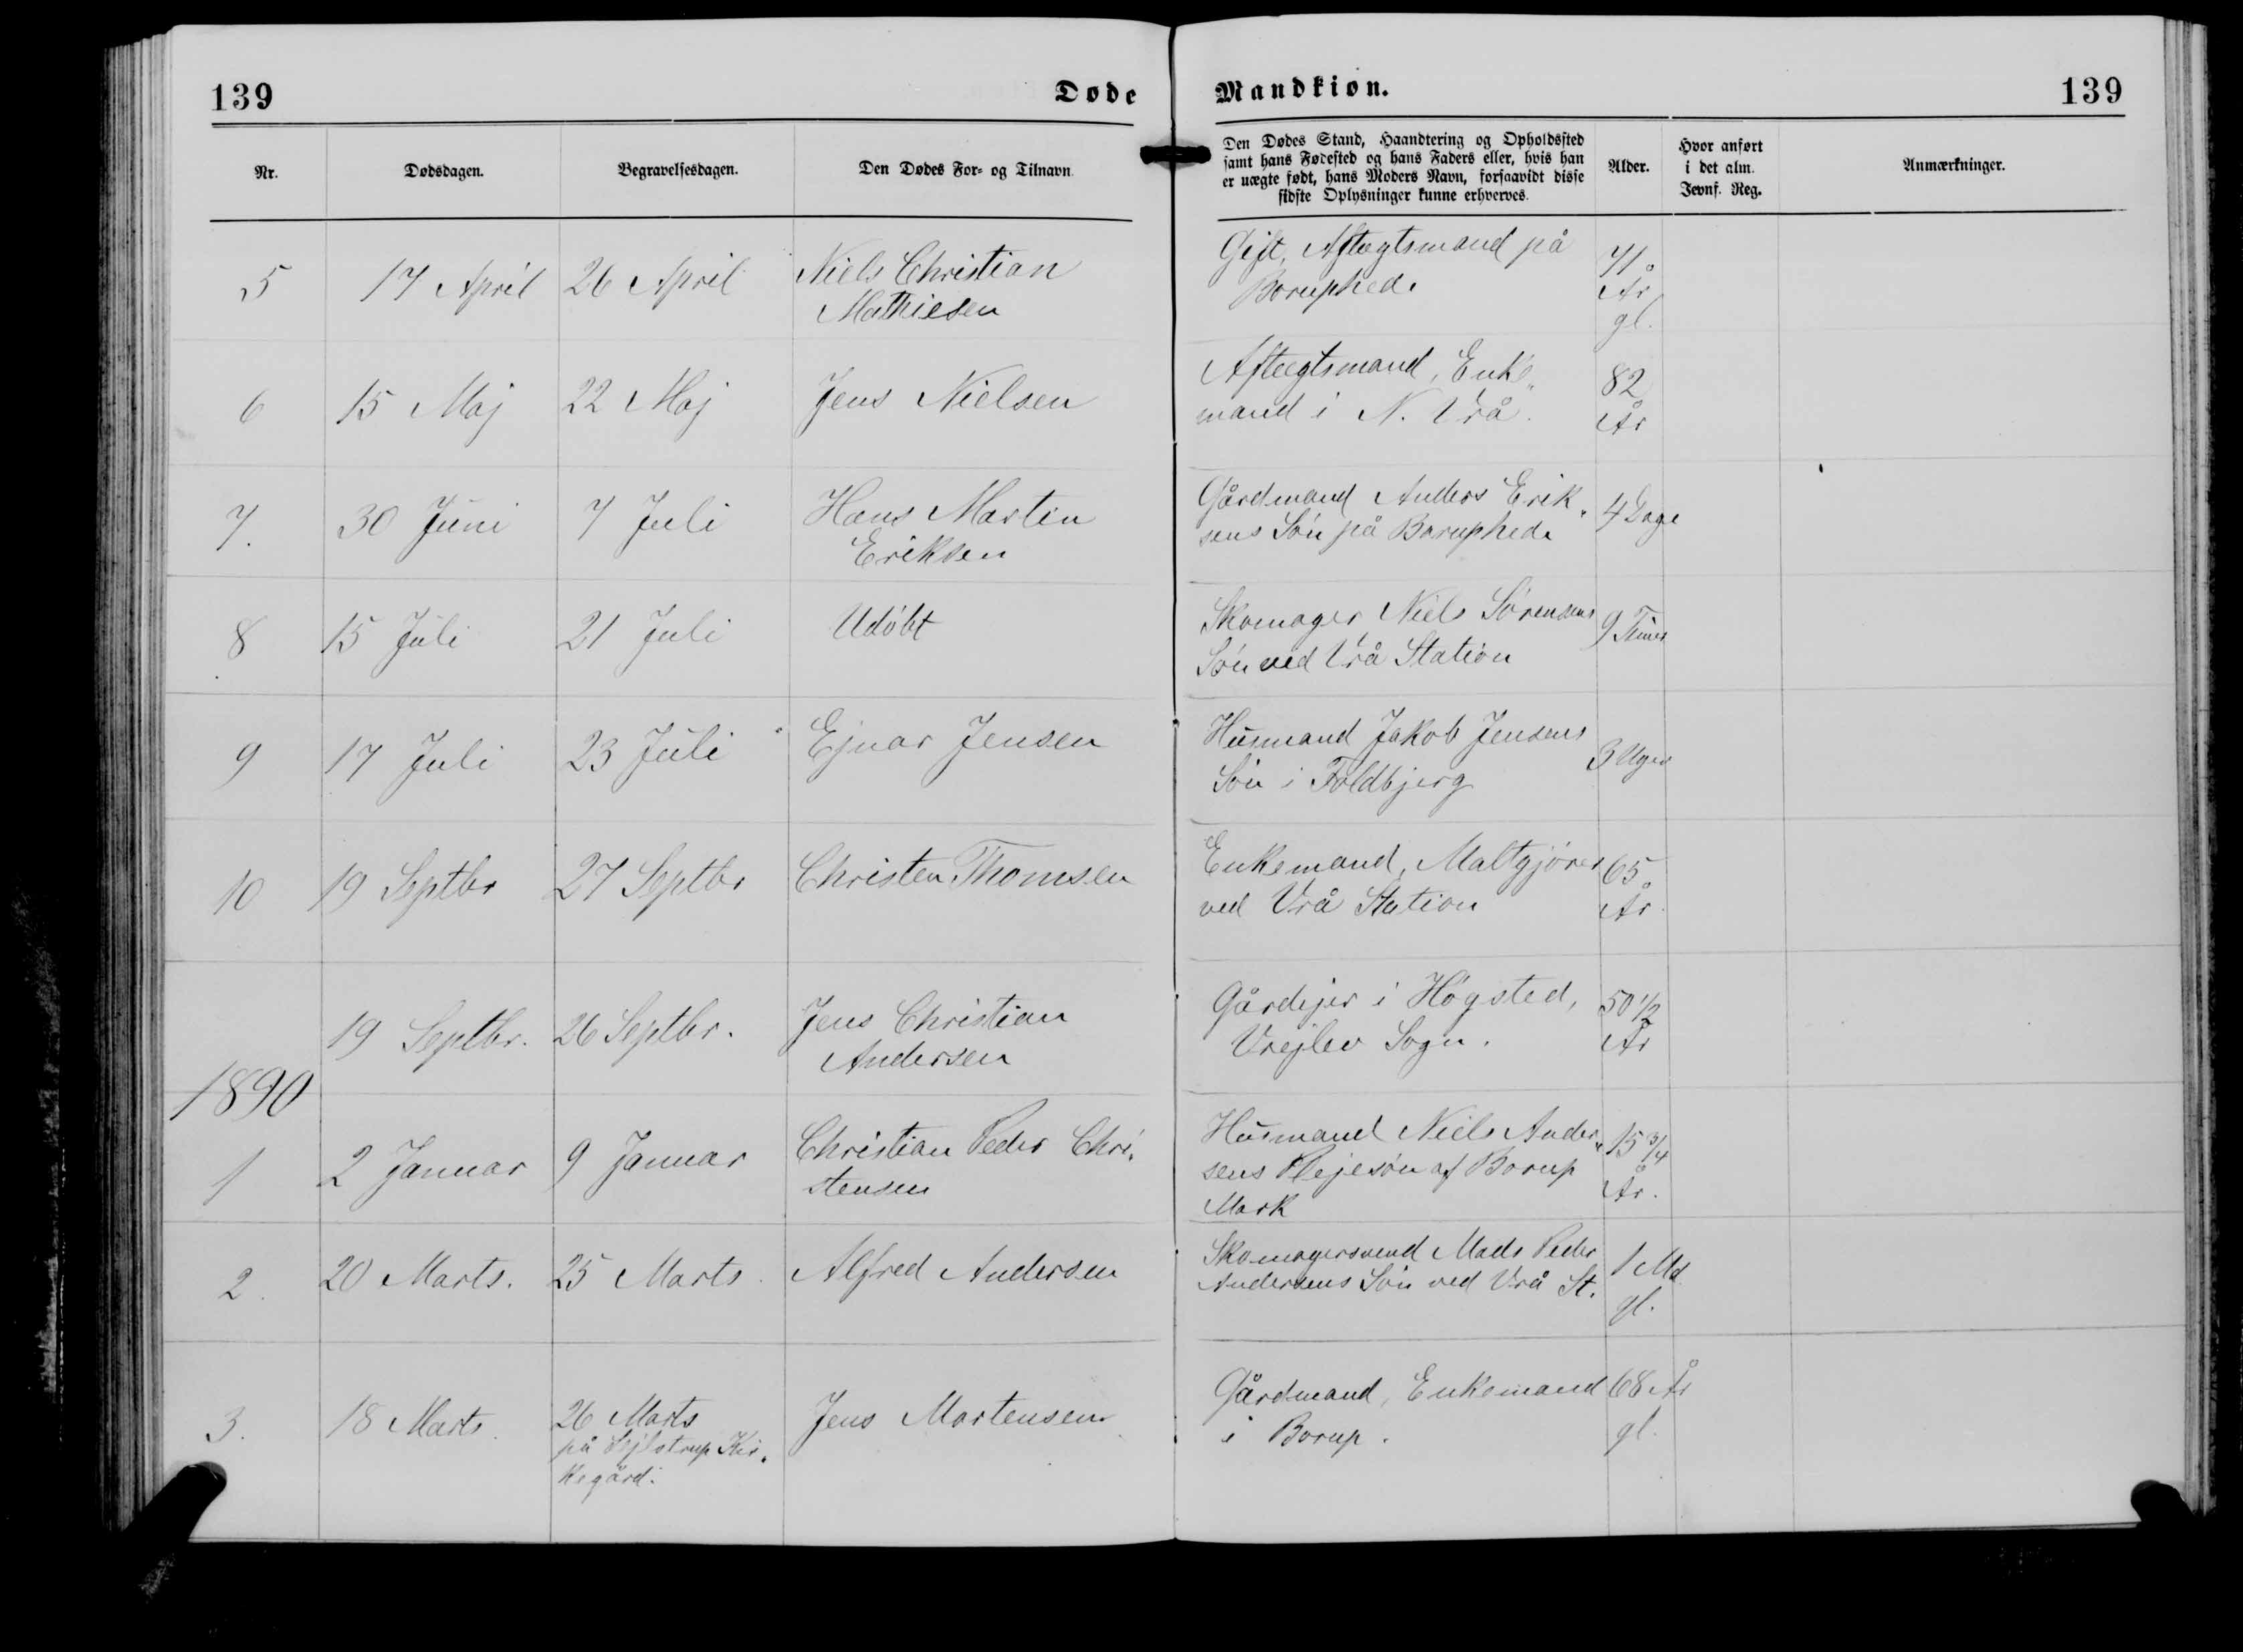 139
Døde
Mandkiøn.
139
Nr.
Dødsdagen.
Begravelsesdagen.
Den Dødes For- og Tilnavn.
Den Dødes Stand, Haandtering og Opholdssted
samt hans Fødested og hans Faders eller, hvis han
er uægte født, hans Moders Navn, forsaavidt disse
sidste Oplysninger kunne erhverves.
Alder.
Hvor anført
i det alm.
Jevnf. Reg.
Anmærkninger.
5
17 April
26 April
Niels Christian
Mathiesen
Gift, Aftægtsmand på
Boruphede
71
År
gl.
6
15 Maj
22 Maj
Jens Nielsen
Aftægtsmand, Enke„
mand i N. Vrå.
82
År
7.
30 Juni
7 Juli
Hans Martin
Eriksen
Gårdmand Anders Erik„
sens Søn på Boruphede
4 Dage
8
15 Juli
21 Juli
Udøbt
Skomager Niels Sørensens
Søn ved Vrå Station
9 Timer
9
17 Juli
23 Juli
Ejnar Jensen
Husmand Jakob Jensens
Søn i Foldbjerg
3 Uger
10
19 Septbr
27 Septbr
Christen Thomsen
Enkemand, Maltgjører
ved Vrå Station
65
År
19 Septbr.
26 Septbr.
Jens Christian
Andersen
Gårdejer i Høgsted,
Vrejlev Sogn.
50 1/2
År
1890
1
2 Januar
9 Januar
Christian Peder Chri„
stensen
Husmand Niels Ander„
sens Plejesøn af Borup
Mark
15 3/4
År.
2.
20 Marts.
25 Marts.
Alfred Andersen
Skomagersvend Mads Peder
Andersens Søn ved Vrå St.
1 Md
gl.
3.
18 Marts.
26 Marts
på Sejlstrup Kir„
kegård.
Jens Mortensen
Gårdmand, Enkemand
i Borup.
68 År
gl.